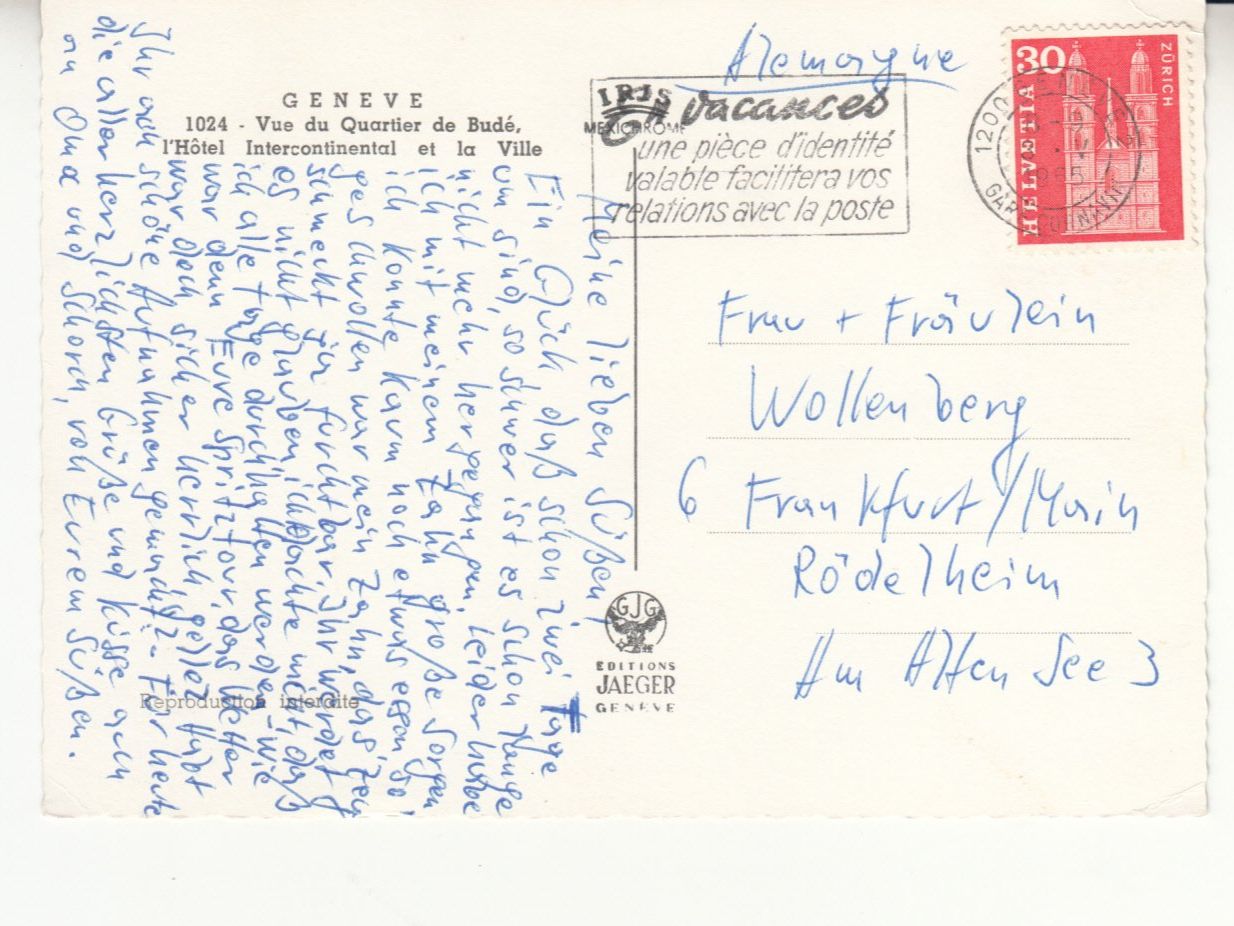 GENEVE
1024 - Vue du Quartier de Budé,
l'Hôtel Intercontinental et la Ville
IRIS
MEXICHROME
En vacances
une pièce d'identité
valable facilitera vos
relations avec la poste
Alemaigne
30
HELVETIA
ZÜRICH
1200
1965
Meine lieben Süßen,
Ein Glück daß schon zwei Tage
um sind, so schwer ist es schon lange
nicht mehr hergegangen. Leider habe
ich mit meinem Zahn große Sorgen
ich konnte kaum noch etwas essen so
geschwollen war mein Zahn, das
schmeckt gar furchtbar. Ihr werdet
es nicht glauben, ich dachte nicht, daß
ich alle Tage durchhalten werde. Wie
war denn Eure Spritztour, das Wetter
war doch sicher herrlich, gelle? Habt
Ihr auch schöne Aufnahmen gemacht? - Für heute
die allerherzlichsten Grüße und Küsse auch
an Oma und Schorch, von Eurem Süßen.
Frau + Fräulein
Wollenberg
6 Frankfurt/Main
Rödelheim
Am Alten See 3
GJG
EDITIONS
JAEGER
GENEVE
Reproduction interdite